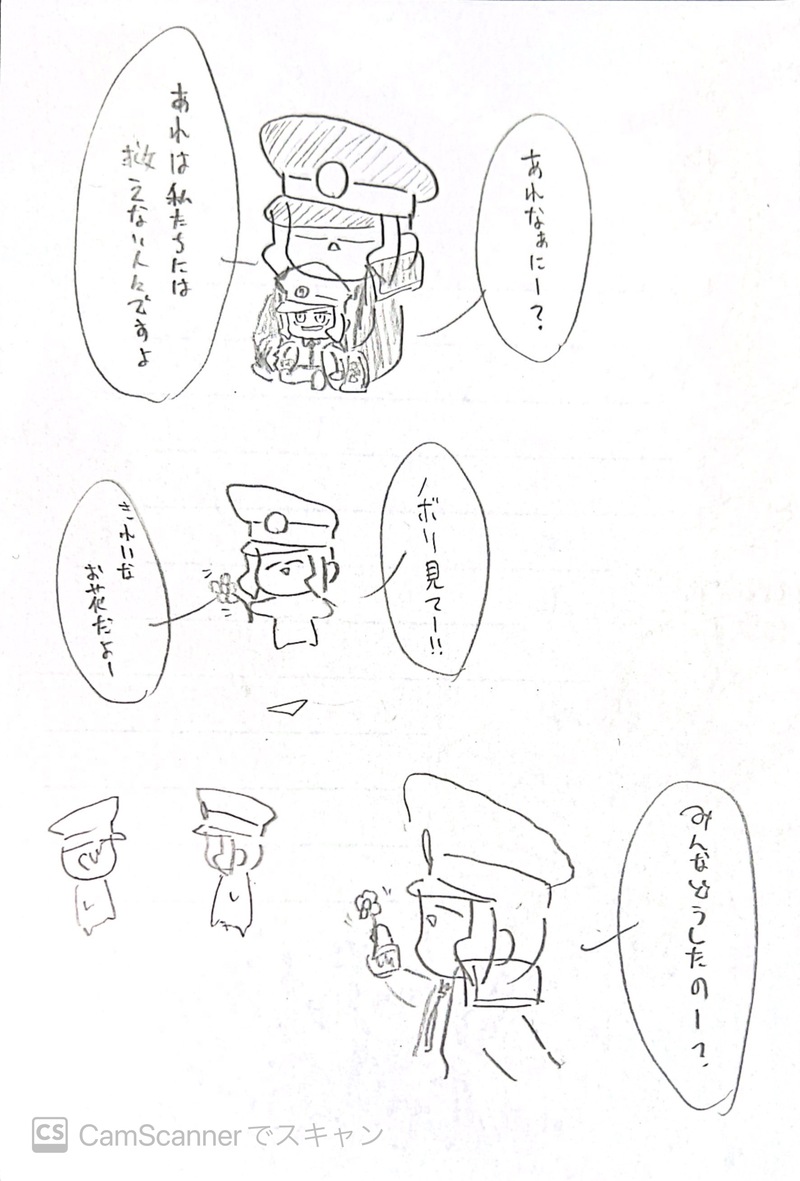 あれなぁにー?
あれは私たちには
救えない人々ですよ
ノボリ見てー!!
きれいな
お花だよー
みんなどうしたのー?
CS CamScannerでスキャン